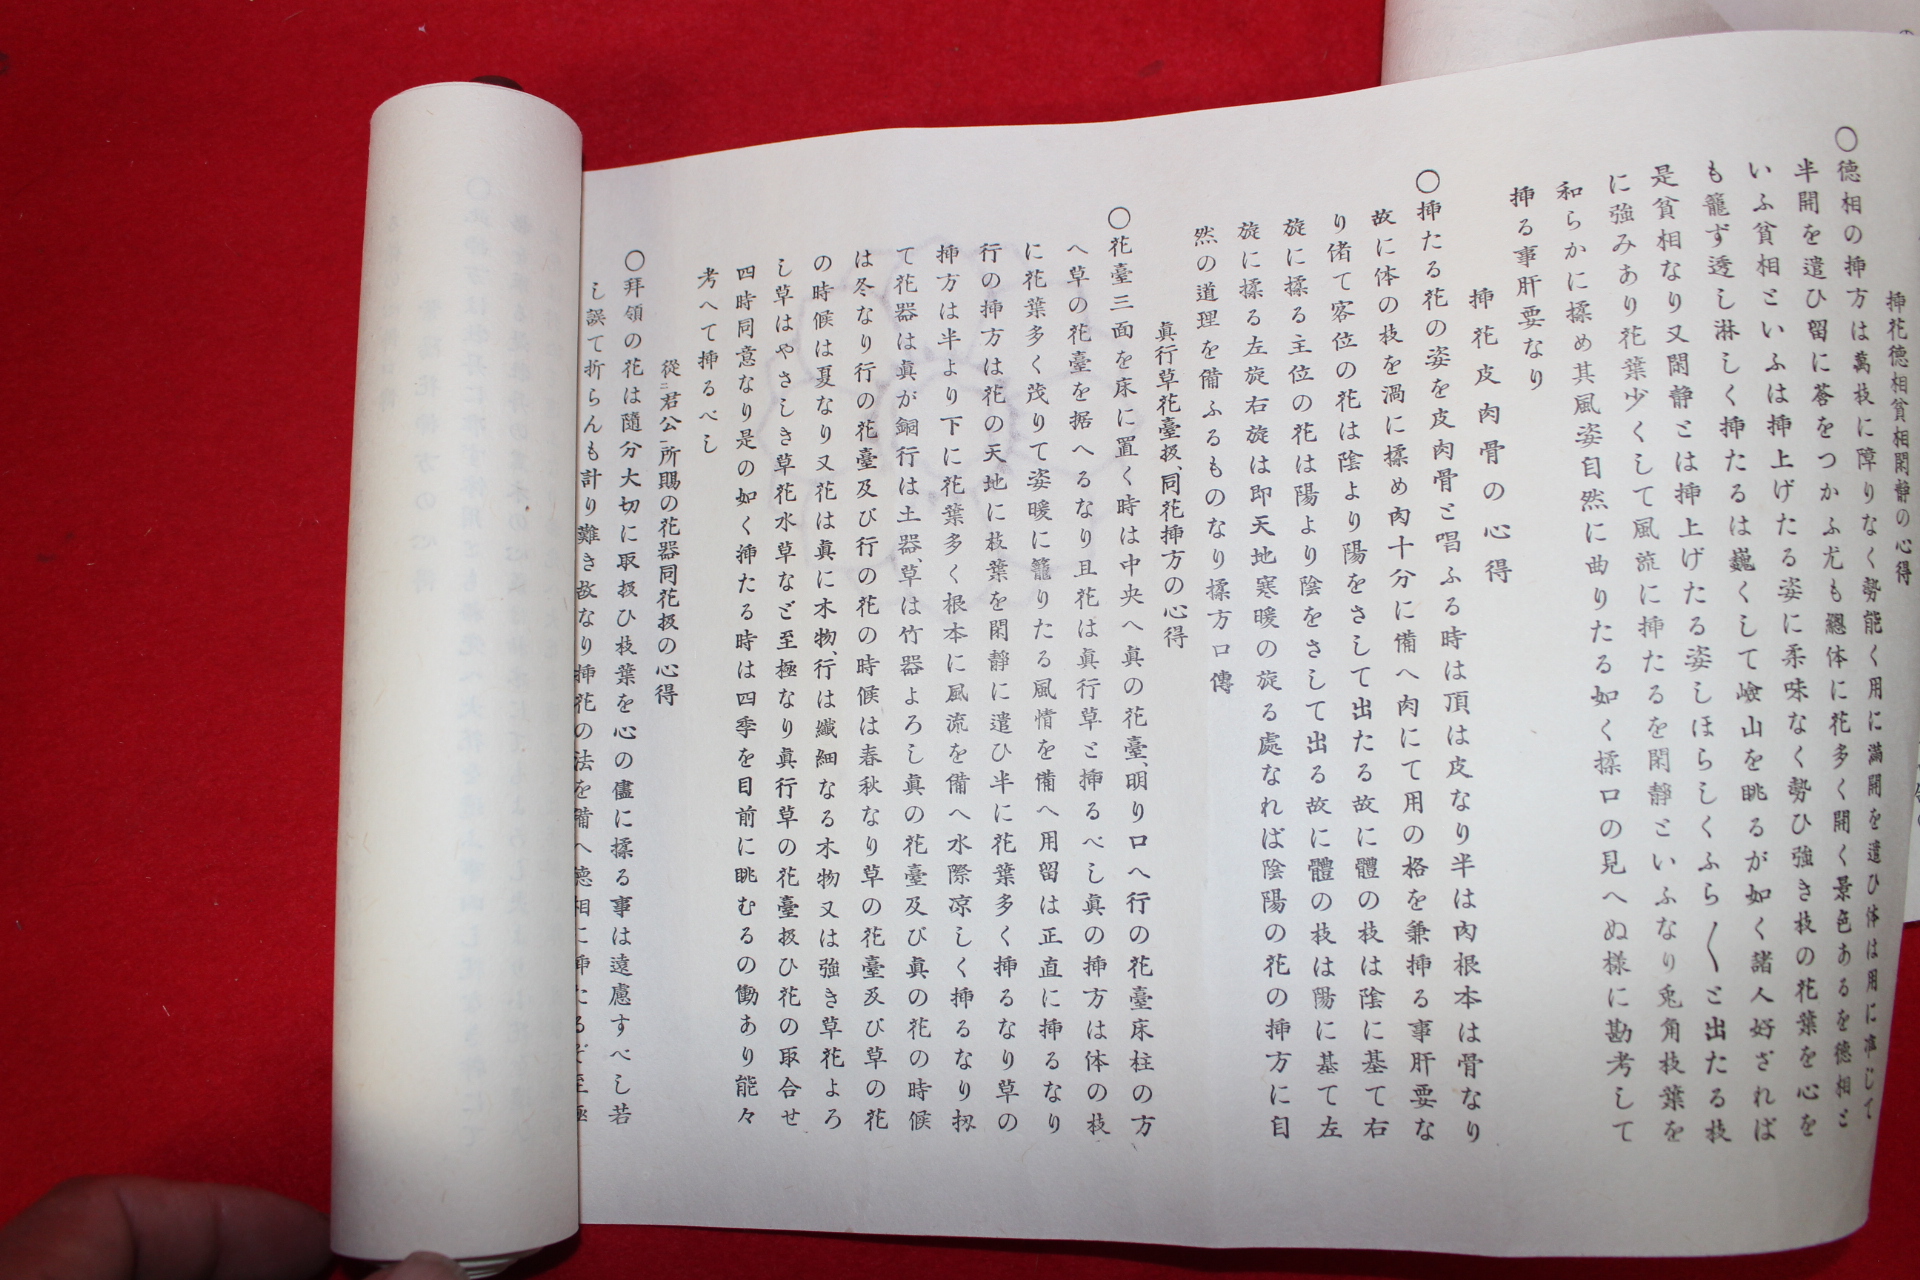 挿花徳相貧相閑静の心得
〇徳相の挿方は萬枝に障りなく勢能く用に満開を遣ひ体は用に準じて
半開を遣ひ留に莟をつかふ尤も總体に花多く開く景色あるを徳相と
いふ貧相といふは挿上げたる姿に柔味なく勢ひ強き枝の花葉を心を
も籠ず透し淋しく挿たるは巍くして嶮山を眺るが如く諸人好ざれば
是貧相なり又閑静とは挿上げたる姿しほらしくふら〱と出たる枝
に強みあり花葉少くして風流に挿たるを閑靜といふなり兎角枝葉を
和らかに揉め其風姿自然に曲りたる如く揉口の見へぬ様に勘考して
挿る事肝要なり
挿花皮肉骨の心得
〇挿たる花の姿を皮肉骨と唱ふる時は頂は皮なり半は肉根本は骨なり
故に体の枝を渦に揉め肉十分に備へ肉にて用の格を兼挿る事肝要な
り偖て客位の花は陰より陽をさして出たる故に體の枝は陰に基て右
旋に揉る主位の花は陽より陰をさして出る故に體の枝は陽に基て左
旋に揉る左旋右旋は即天地寒暖の旋る處なれば陰陽の花の挿方に自
然の道理を備ふるものなり揉方口傳
眞行草花臺扱、同花挿方の心得
〇花臺三面を床に置く時は中央へ真の花臺、明り口へ行の花臺床柱の方
へ草の花臺を据へるなり且花は眞行草と挿るべし眞の挿方は体の枝
に花葉多く茂りて姿暖に籠りたる風情を備へ用留は正直に挿るなり
行の挿方は花の天地に枝葉を閑靜に遣ひ半に花葉多く挿るなり草の
挿方は半より下に花葉多く根本に風流を備へ水際凉しく挿るなり扨
て花器は眞が銅行は土器、草は竹器よろし真の花臺及び眞の花の時候
は冬なり行の花臺及び行の花の時候は春秋なり草の花臺及び草の花
の時候は夏なり又花は眞に木物、行は纖細なる木物又は強き草花よろ
し草はやさしき草花水草など至極なり眞行草の花臺扱ひ花の取合せ
四時同意なり是の如く挿たる時は四季を目前に眺むるの働あり能々
考へて挿るべし
從ニ君公一所賜の花器同花扱の心得
〇拜領の花は隨分大切に取扱ひ枝葉を心の儘に揉る事は遠慮すべし若
し誤て折らんも計り難き故なり挿花の法を備へ徳相に挿たるぞ至極